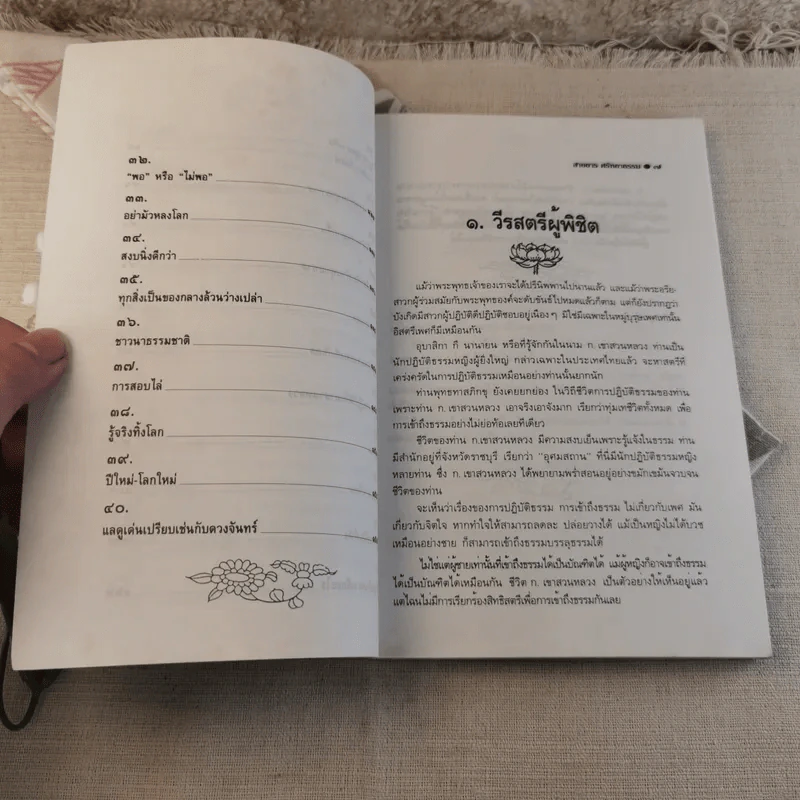 ๓๒.
"พอ" หรือ "ไม่พอ"
๓๓.
อย่ามัวหลงโลก
๓๔.
สงบนิ่งดีกว่า
๓๕.
ทุกสิ่งเป็นของกลางล้วนว่างเปล่า
๓๖.
ชาวนาธรรมชาติ
๓๗.
การสอบไล่
๓๘.
รู้จริงทิ้งโลก
๓๙.
ปีใหม่-โลกใหม่
๔๐.
แลดูเด่นเปรียบเช่นกับดวงจันทร์
๗
๑. วีรสตรีผู้พิชิต
แม้ว่าพระพุทธเจ้าของเราจะได้ปรินิพพานไปนานแล้ว และแม้ว่าพระอริยะ-
สาวกผู้ร่วมสมัยกับพระพุทธองค์จะดับขันธ์ไปหมดแล้วก็ตาม แต่ก็ยังปรากฏว่า
บังเกิดมีสาวกผู้ปฏิบัติดีปฏิบัติชอบอยู่เนืองๆ มิใช่มีเฉพาะในหมู่บุรุษเพศเท่านั้น
อิสตรีเพศก็มีเหมือนกัน
อุบาสิกา กี นานายน หรือที่รู้จักกันในนาม ก. เขาสวนหลวง ท่านเป็น
นักปฏิบัติธรรมหญิงผู้ยิ่งใหญ่ กล่าวเฉพาะในประเทศไทยแล้ว จะหาสตรีที่
เคร่งครัดในการปฏิบัติธรรมเหมือนอย่างท่านนั้นยากนัก
ท่านพุทธทาสภิกขุ ยังเคยยกย่อง ในวิถีชีวิตการปฏิบัติธรรมของท่าน
เพราะท่าน ก. เขาสวนหลวง เอาจริงเอาจังมาก เรียกว่าทุ่มเทชีวิตทั้งหมด เพื่อ
การเข้าถึงธรรมอย่างไม่ย่อท้อเลยทีเดียว
ชีวิตของท่าน ก.เขาสวนหลวง มีความสงบเย็นเพราะรู้แจ้งในธรรม ท่าน
มีสำนักอยู่ที่จังหวัดราชบุรี เรียกว่า "อุศมสถาน" ที่นี่มีนักปฏิบัติธรรมหญิง
หลายท่าน ซึ่ง ก.เขาสวนหลวง ได้พยายามพร่ำสอนอยู่อย่างขมักเขมันจวบจน
ชีวิตของท่าน
จะเห็นว่าเรื่องของการปฏิบัติธรรม การเข้าถึงธรรม ไม่เกี่ยวกับเพศ มัน
เกี่ยวกับจิตใจ หากทำใจให้สามารถลดละ ปล่อยวางได้ แม้เป็นหญิงไม่ได้บวช
เหมือนอย่างชาย ก็สามารถเข้าถึงธรรมบรรลุธรรมได้
ไม่ใช่แต่ผู้ชายเท่านั้นที่เข้าถึงธรรมได้เป็นบัณฑิตได้ แม้ผู้หญิงก็อาจเข้าถึงธรรม
ได้เป็นบัณฑิตได้เหมือนกัน ชีวิต ก. เขาสวนหลวง เป็นตัวอย่างให้เห็นอยู่แล้ว
แต่ไฉนไม่มีการเรียกร้องสิทธิสตรีเพื่อการเข้าถึงธรรมกันเลย